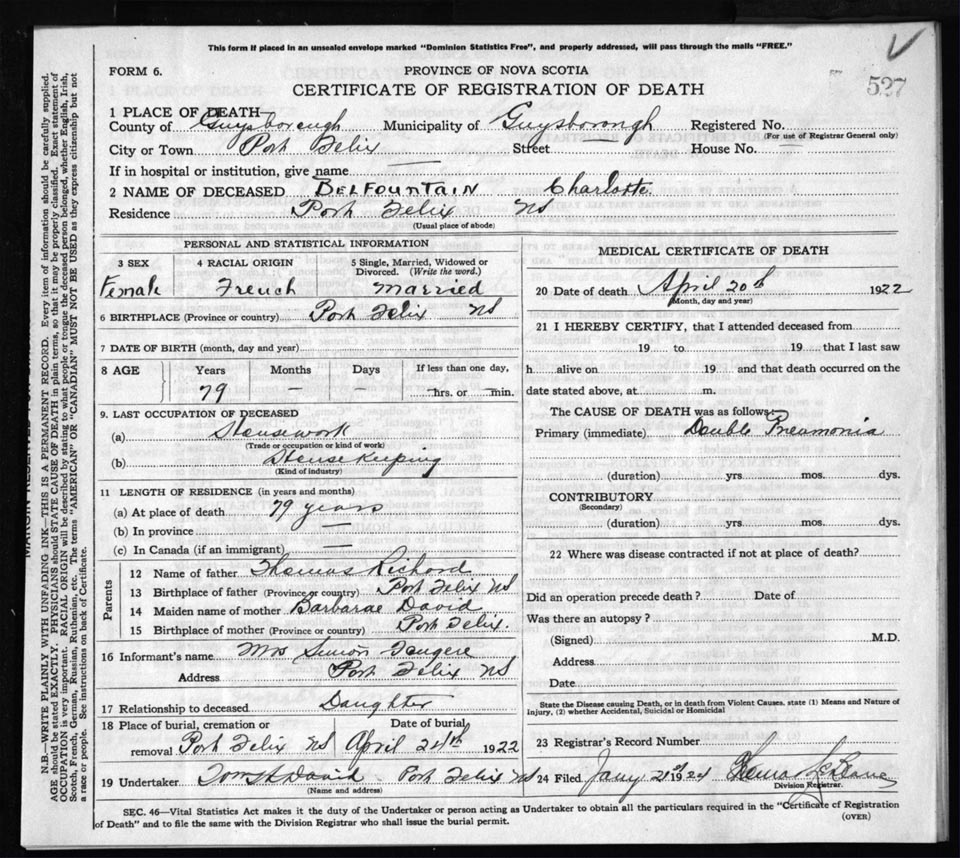 This form if placed in an unsealed envelope marked "Dominion Statistics Free", and properly addressed, will pass through the mails "FREE."
FORM 6.
PROVINCE OF NOVA SCOTIA
527
CERTIFICATE OF REGISTRATION OF DEATH
1 PLACE OF DEATH—
County of Guysborough Municipality of Guysborough Registered No.
(For use of Registrar General only)
City or Town Port Felix Street — House No. —
If in hospital or institution, give name —
2 NAME OF DECEASED BELFOUNTAIN Charlotte
Residence Port Felix NS
(Usual place of abode)
PERSONAL AND STATISTICAL INFORMATION
3 SEX 4 RACIAL ORIGIN 5 Single, Married, Widowed or Divorced. (Write the word.)
Female French Married
6 BIRTHPLACE (Province or country) Port Felix NS
7 DATE OF BIRTH (month, day and year)
8 AGE Years Months Days If less than one day,
79 — — — hrs. or — min.
9. LAST OCCUPATION OF DECEASED
(a) Housework
(Trade or occupation or kind of work)
(b) House Keeping
(Kind of industry)
11 LENGTH OF RESIDENCE (in years and months)
(a) At place of death 79 years
(b) In province —
(c) In Canada (if an immigrant) —
Parents
12 Name of father Thomas Richard
13 Birthplace of father (Province or country) Port Felix NS
14 Maiden name of mother Barbarae David
15 Birthplace of mother (Province or country) Port Felix.
16 Informant's name Mrs Simon Faugere
Address Port Felix NS
17 Relationship to deceased Daughter
18 Place of burial, cremation or removal Port Felix NS Date of burial April 24th 1922
19 Undertaker David Port Felix NS
(Name and address)
MEDICAL CERTIFICATE OF DEATH
20 Date of death April 20th 1922
(Month, day and year)
21 I HEREBY CERTIFY, that I attended deceased from
19 to 19 that I last saw
h alive on 19 and that death occurred on the
date stated above, at m.
The CAUSE OF DEATH was as follows:—
Primary (immediate) Double Pneamonia
(duration) yrs mos. dys.
CONTRIBUTORY
(Secondary)
(duration) yrs. mos. dys.
22 Where was disease contracted if not at place of death?
Did an operation precede death? Date of
Was there an autopsy?
(Signed) M.D.
Address
Date
State the Disease causing Death, or in death from Violent Causes, state (1) Means and Nature of
Injury, (2) whether Accidental, Suicidal or Homicidal
23 Registrar's Record Number
24 Filed Jany 21st 1924
Division Registrar.
SEC. 46—Vital Statistics Act makes it the duty of the Undertaker or person acting as Undertaker to obtain all the particulars required in the "Certificate of Registration
of Death" and to file the same with the Division Registrar who shall issue the burial permit.
(OVER)
N.B.—WRITE PLAINLY WITH UNFADING INK—THIS IS A PERMANENT RECORD. Every item of information should be carefully supplied.
AGE should be stated EXACTLY. PHYSICIANS should STATE CAUSE OF DEATH in plain terms, so that it may be properly classified. Exact statement of
OCCUPATION is very important. RACIAL ORIGIN will be described by stating to what people or tongue the deceased person belonged, whether English, Irish,
Scotch, French, German, Russian, Ruthenian, etc. The terms "AMERICAN" or "CANADIAN" MUST NOT BE USED as they express citizenship but not
a race or people. See instructions on back of Certificate.